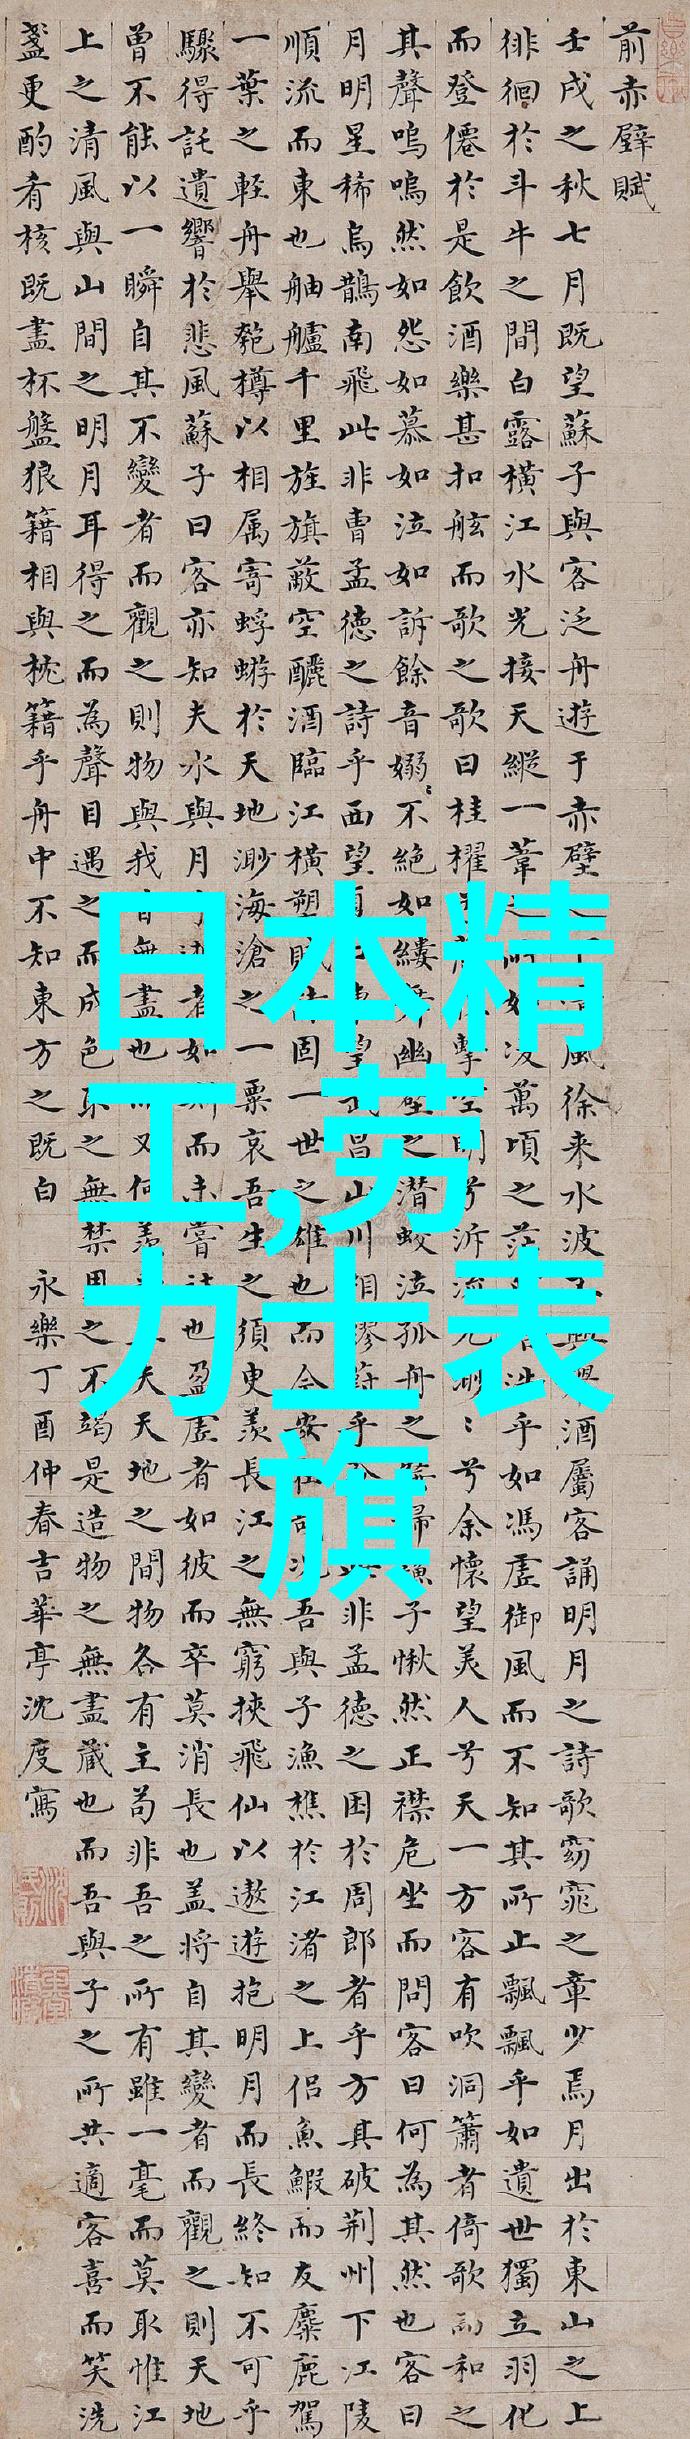 前赤壁賦
壬戌之秋七月既望蘇子與客泛舟遊于赤壁風徐来水波不興舉酒屬客誦明月之詩歌窈窕之章少焉月出於東山之上
徘徊於斗牛之間白露横江水光接天縱一葦之所如凌萬頃之茫浩乎如馮虚御風而不知其所止飄飄乎如遺世獨立羽化
而登僊於是飲酒樂甚扣舷而歌之歌曰桂櫂擊空明兮泝流光渺〻兮余懷望美人兮天一方客有吹洞簫者倚歌而和之
其聲嗚嗚然如怨如慕如泣如訴餘音嫋〻不絶如縷舞幽壑之潛蛟泣孤舟之嫠婦漁子愀然正襟危坐而問客曰何為其然也客曰
月明星稀烏鵲南飛此非曹孟德之詩乎西望東望武昌山川相繆鬱乎非孟德之困於周郎者乎方其破荆州下江陵
順流而東也舳艫千里旌旗蔽空釃酒臨江横槊賦詩固一世之雄也而今安在哉況吾與子漁樵於江渚之上侣魚鰕而友麋鹿駕
一葉之輕舟舉匏樽以相属寄蜉蝣於天地渺海滄之一粟哀吾生之須臾羡長江之無窮挾飛仙以遨遊抱明月而長終知不可乎
驟得託遺響於悲風蘇子曰客亦知夫水與月乎逝者如斯而未嘗往也盈虚者如彼而卒莫消長也蓋将自其變者而觀之則天地
曾不能以一瞬自其不變者而觀之則物與我皆無盡也而又何羡夫天地之間物各有主苟非吾之所有雖一毫而莫取惟江
上之清風與山間之明月耳得之而為聲目遇之而成色取之無禁用之不竭是造物之無盡藏也而吾與子之所共適客喜而笑洗
盞更酌肴核既盡杯盤狼籍相與枕籍乎舟中不知東方之既白 永樂丁酉仲春吉華亭沈度寫
日本精
工,劳
力士表
旗